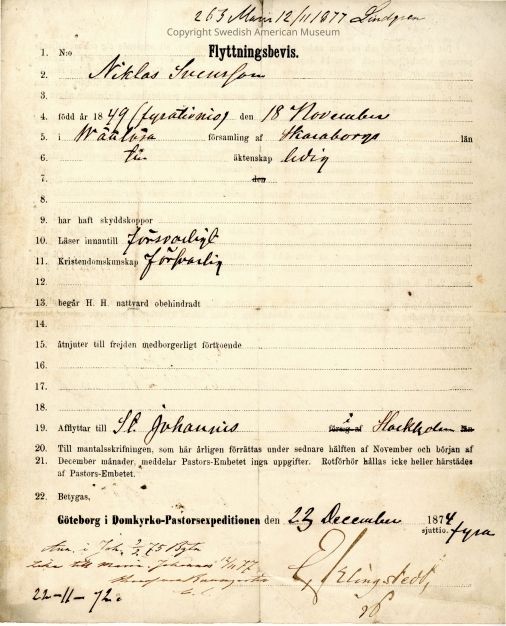 263 Maria 12/11 1877 Lindgren
Copyright Swedish American Museum
1. N:o Flyttningsbevis.
2. Niklas Svensson
3.
4. född år 1849 (fyrationio) den 18 November
5. i församling af Skaraborgs län
6. till äktenskap ledig
7. den
8.
9. har haft skyddskoppor
10. Läser innantill försvarligt
11. Kristendomskunskap försvarlig
12.
13. begår H. H. nattvard obehindradt
14.
15. åtnjuter till frejden medborgerligt förtroende
16.
17.
18.
19. Afflyttar till St. Johannis försg af i Stockholm län
20. Till mantalsskrifningen, som här årligen förrättas under sednare hälften af November och början af
21. December månader, meddelar Pastors-Embetet inga uppgifter. Rotförhör hållas icke heller härstädes
af Pastors-Embetet.
22. Betygas,
Göteborg i Domkyrko-Pastorsexpeditionen den 23 December 1874
sjuttio. fyra
E. Klingstedt
22-11-72.